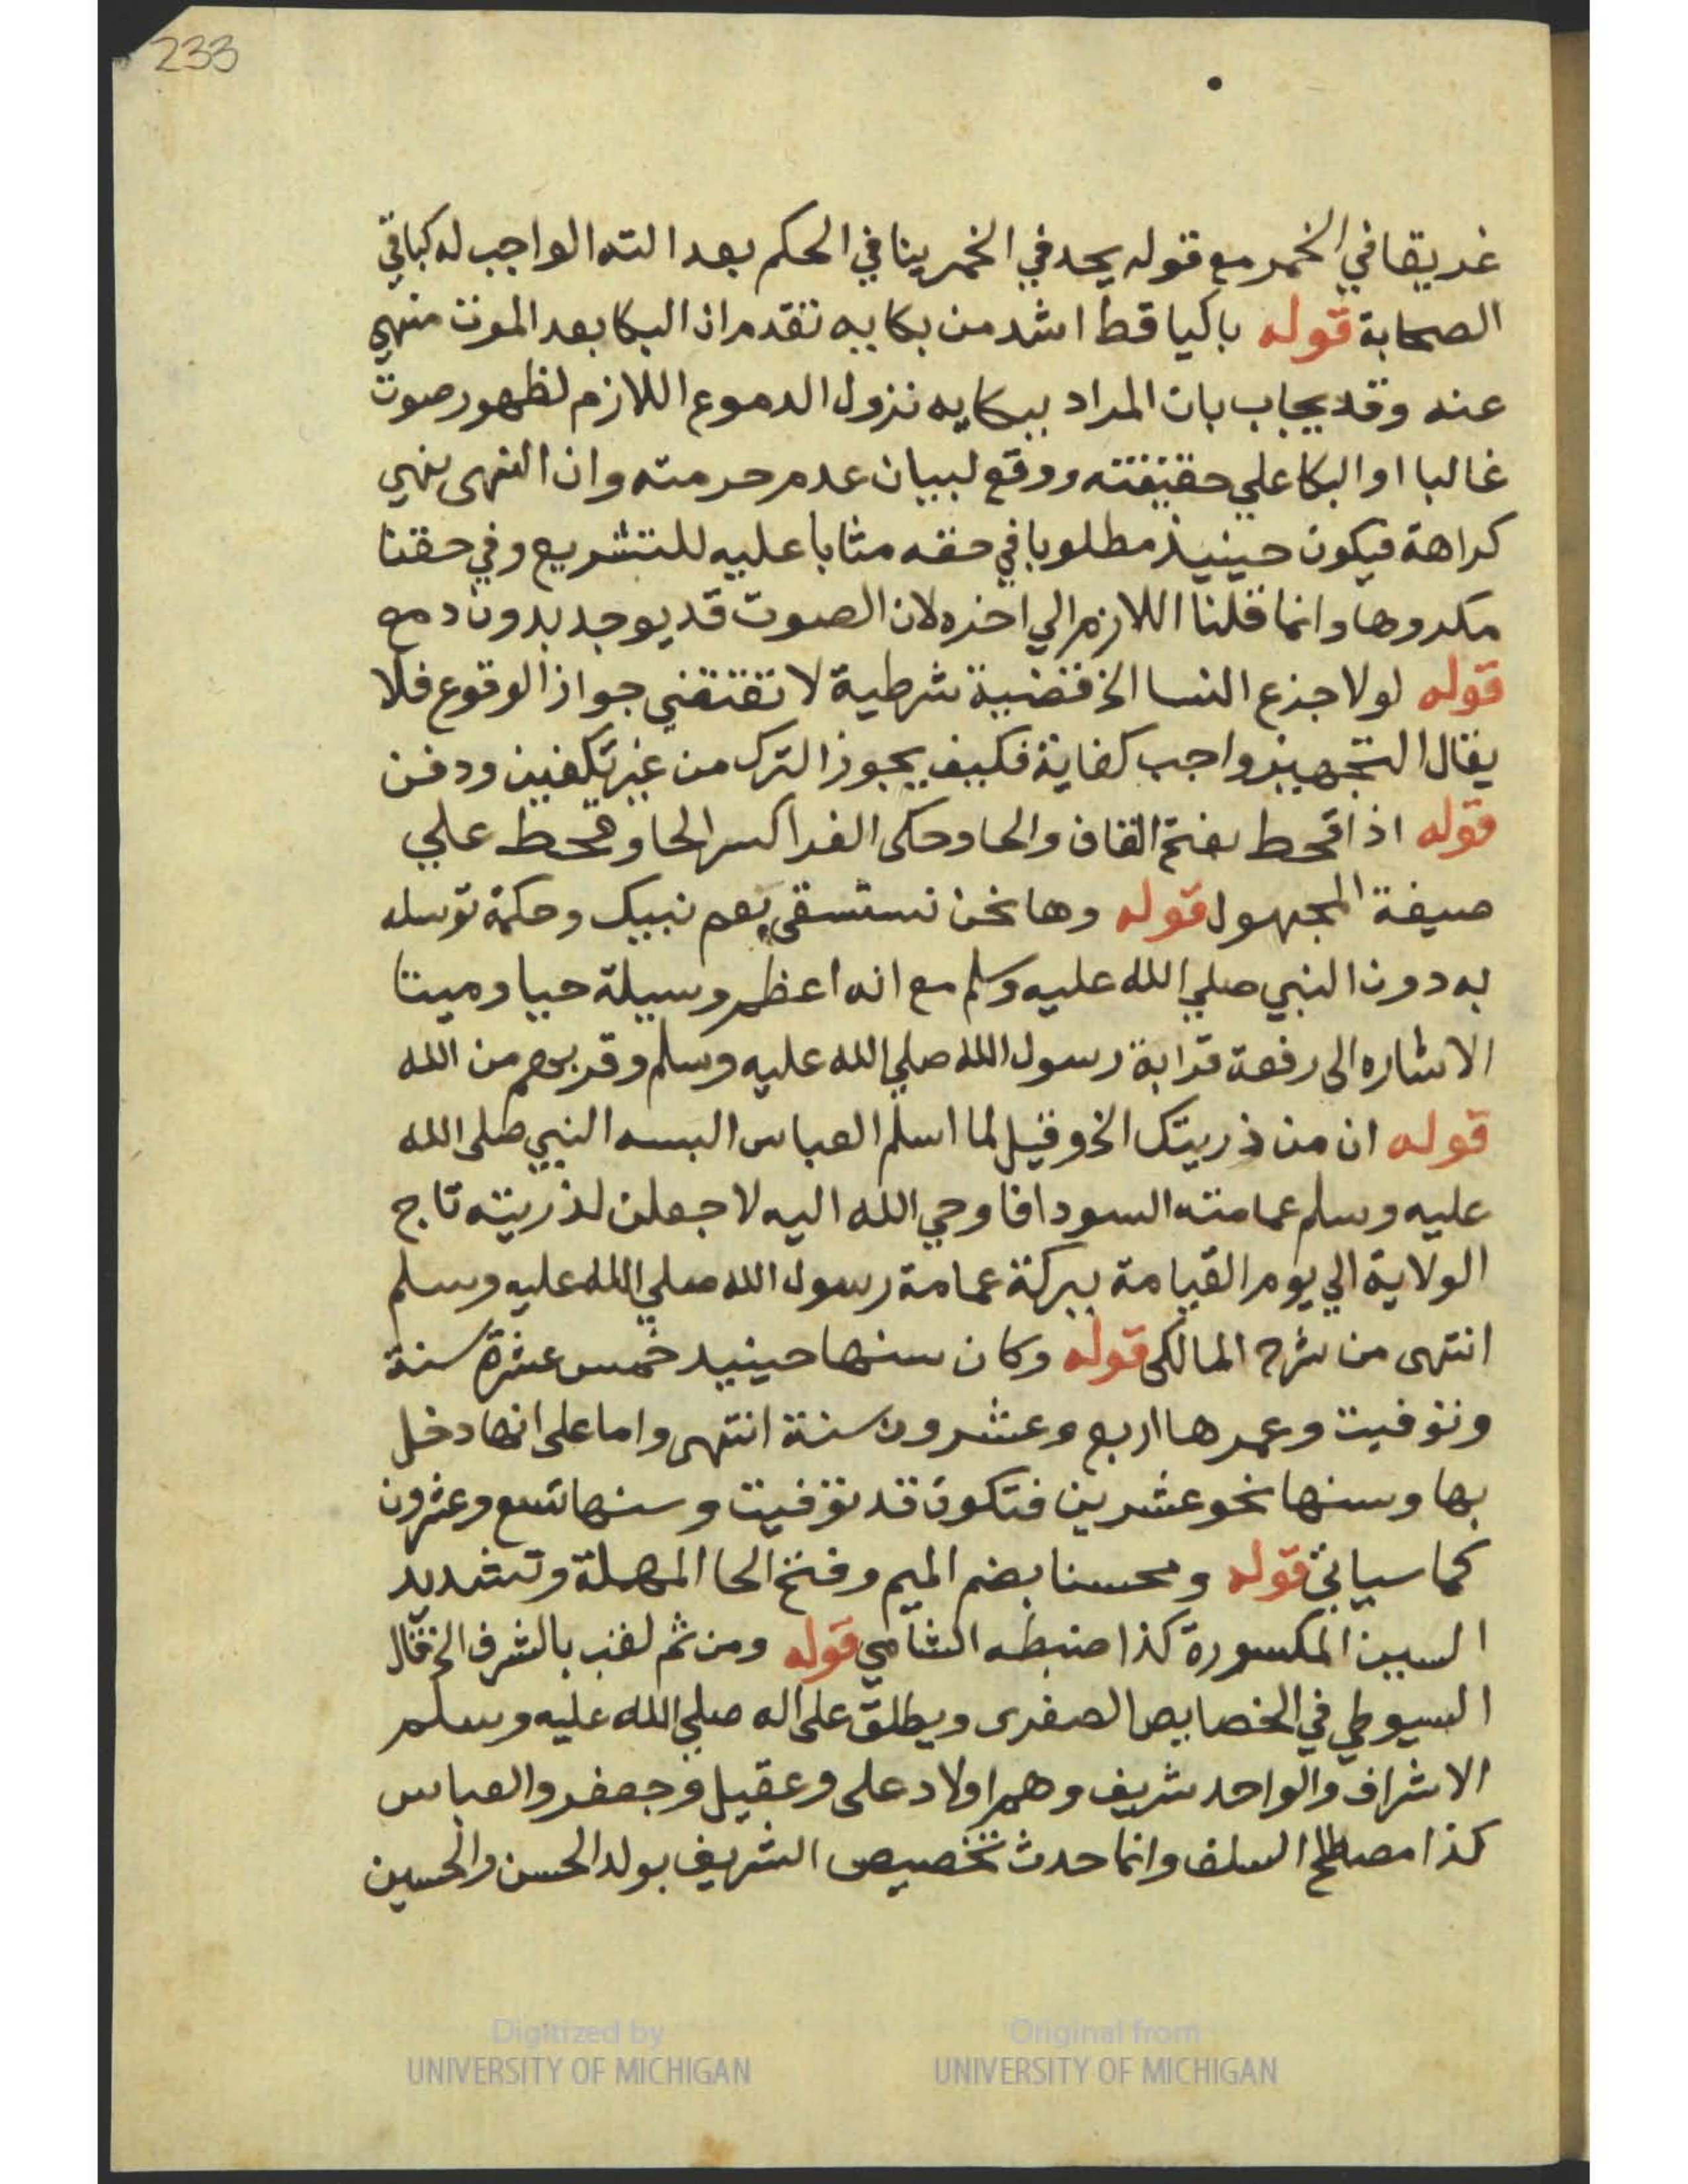 233
غريقا في الخمر مع قوله يحد في الخمر ينافي الحكم بعدالته الواجب له كباقي
الصحابة قوله باكيا قط اشد من بكايه تقدم ان البكا بعد الموت منهي
عنه وقد يجاب بان المراد ببكايه نزول الدموع اللازم لظهور صوت
غالبا او البكا علي حقيقته ووقع لبيان عدم حرمته وان النهى نهي
كراهة فيكون حينيذ مطلوبا في حقه مثابا عليه للتشريع وفي حقنا
مكروها وانما قلنا اللازم الي اخره لان الصوت قد يوجد بدون دمع
قوله لولا جزع النسا الخ قضية شرطية لا تقتضي جواز الوقوع فلا
يقال التجهيز واجب كفاية فكيف يجوز الترك من غير تكفين ودفن
قوله اذا قحط بفتح القاف والحا وحكى الفرا كسر الحا وقحط علي
صيغة المجهول قوله وها نحن نستسقي بعم نبيك وحكمة توسله
به دون النبي صلي الله عليه وسلم مع انه اعظم وسيلة حيا وميتا
الاشاره الى رفعة قرابة رسول الله صلي الله عليه وسلم وقربهم من الله
قوله ان من ذريتك الخ وقيل لما اسلم العباس البسه النبي صلى الله
عليه وسلم عمامته السودا فاوحي الله اليه لاجعلن لذريته تاج
الولاية الي يوم القيامة ببركة عمامة رسول الله صلي الله عليه وسلم
انتهى من شرح المالكى قوله وكان سنها حينيد خمس عشرة سنة
وتوفيت وعمرها اربع وعشرون سنة انتهى واما على انها دخل
بها وسنها نحو عشرين فتكون قد توفيت وسنها تسع وعشرون
كما سياتي قوله ومحسنا بضم الميم وفتح الحا المهملة وتشديد
السين المكسورة كذا ضبطه الشامي قوله ومن ثم لقب بالشرف الخ قال
السيوطي في الخصايص الصغرى ويطلق على اله صلي الله عليه وسلم
الاشراف والواحد شريف وهم اولاد على وعقيل وجعفر والعباس
كذا مصطلح السلف وانما حدث تخصيص الشريف بولد الحسن والحسين
Digitized by
UNIVERSITY OF MICHIGAN
Original from
UNIVERSITY OF MICHIGAN